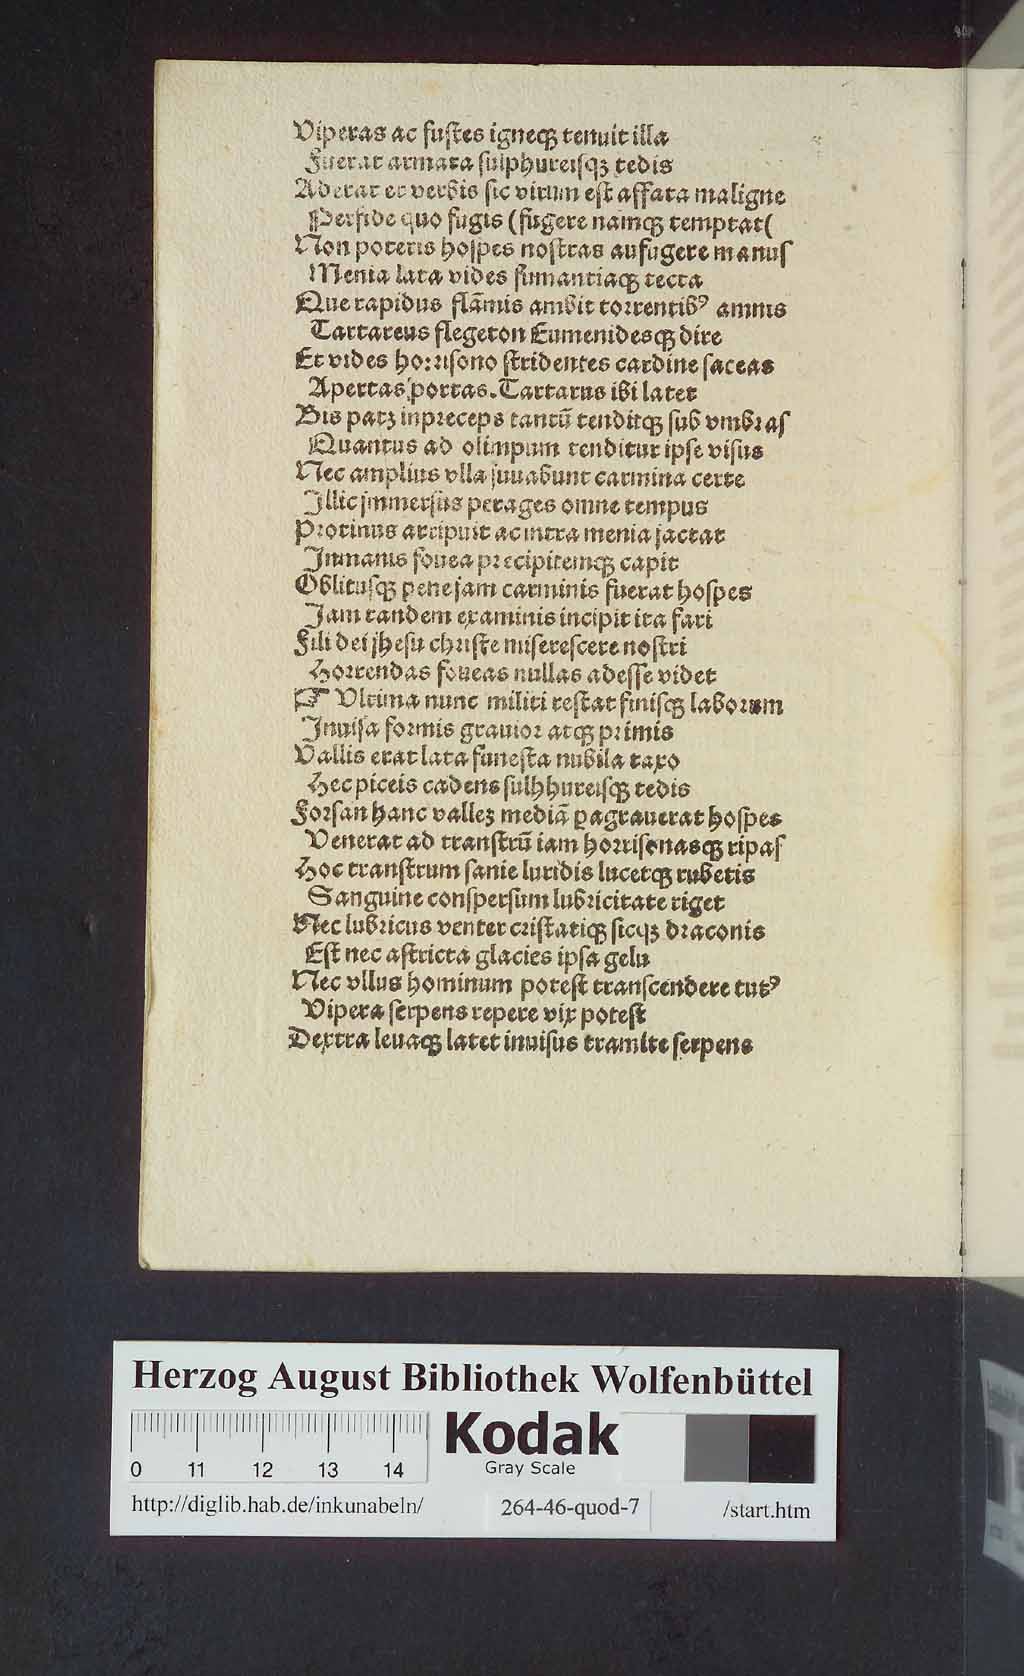 Viperas ac fustes igneqꝫ tenuit illa
Fuerat armata sulphureisqꝫ tedis
Aderat et verbis sic virum est affata maligne
Perfide quo fugis (fugere namqꝫ temptat(
Non poteris hospes nostras aufugere manus
Menia lata vides fumantiaqꝫ tecta
Que rapidus flāmis ambit torrentibꝰ amnis
Tartareus flegeton Eumenidesqꝫ dire
Et vides horrisono stridentes cardine saceas
Apertas portas. Tartarus ibi latet
Bis patꝫ inpreceps tantū tenditqꝫ sub vmbras
Quantus ad olimpum tenditur ipse visus
Nec amplius vlla juuabunt carmina certe
Illic jmmersus perages omne tempus
Protinus arripuit ac intra menia jactat
Inmanis fouea precipitemqꝫ capit
Oblitusqꝫ pene jam carminis fuerat hospes
Jam tandem examinis incipit ita fari
Fili dei jhesu christe miserescere nostri
Horrendas foueas nullas adesse videt
☞ Vltima nunc militi restat finisqꝫ laborum
Inuisa formis grauior atqꝫ primis
Vallis erat lata funesta nubila taxo
Hec piceis cadens sulhhureisqꝫ tedis
Forsan hanc vallez mediā ꝑagrauerat hospes
Venerat ad transtrū iam horrisonasqꝫ ripas
Hoc transtrum sanie luridis lucetqꝫ rubetis
Sanguine conspersum lubricitate riget
Nec lubricus venter cristatiqꝫ sicqꝫ draconis
Est nec astricta glacies ipsa gelu
Nec vllus hominum potest transcendere tutꝰ
Vipera serpens repere vix potest
Dextra leuaqꝫ latet inuisus tramite serpens
Herzog August Bibliothek Wolfenbüttel
Kodak
Gray Scale
0 11 12 13 14
http://diglib.hab.de/inkunabeln/ 264-46-quod-7 /start.htm